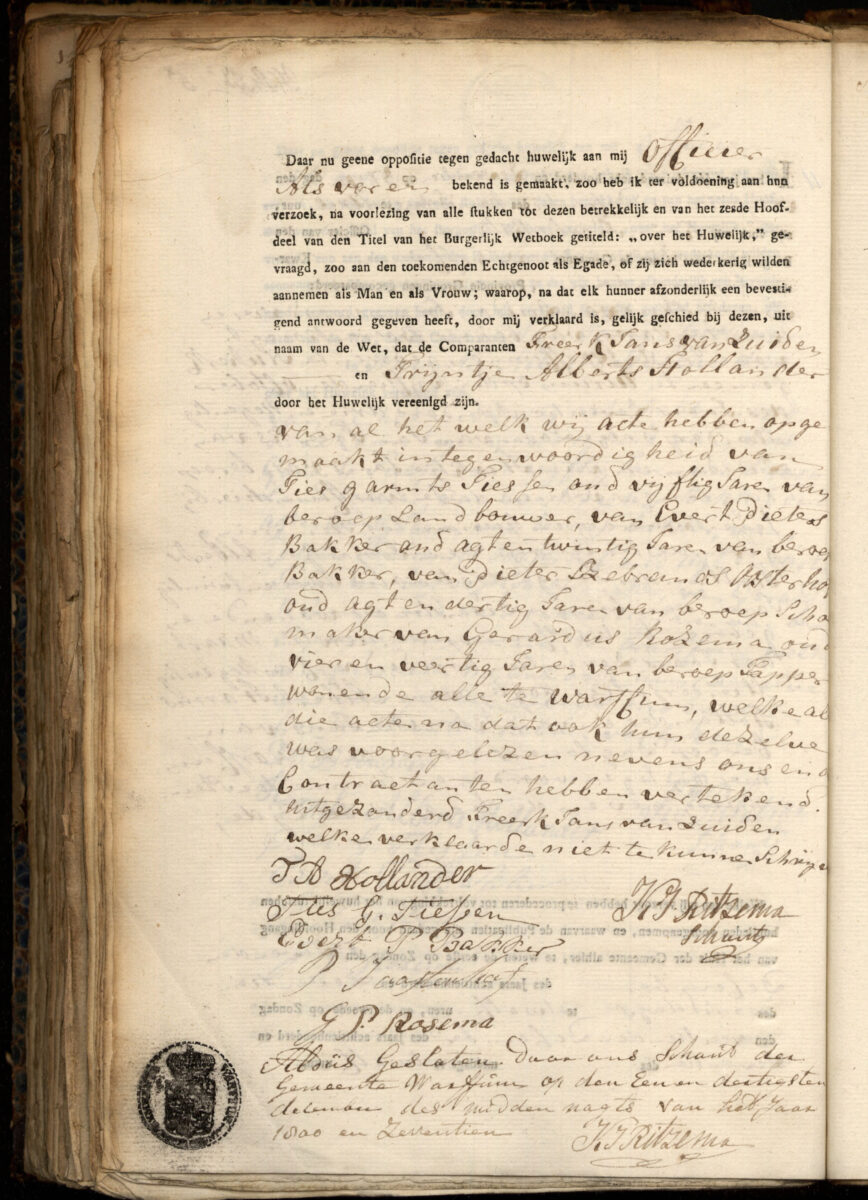 Daar nu geene oppositie tegen gedacht huwelijk aan mij officier
Als voren bekend is gemaakt, zoo heb ik ter voldoening aan hun
verzoek, na voorlezing van alle stukken tot dezen betrekkelijk en van het zesde Hoof-
deel van den Titel van het Burgerlijk Wetboek getiteld: „over het Huwelijk,” ge-
vraagd, zoo aan den toekomenden Echtgenoot als Egade, of zij zich wederkerig wilden
aannemen als Man en als Vrouw; waarop, na dat elk hunner afzonderlijk een bevesti-
gend antwoord gegeven heeft, door mij verklaard is, gelijk geschied bij dezen, uit
naam van de Wet, dat de Comparanten Freerk Jans van Zuiden
en Trijntje Alberts Hollander
door het Huwelijk vereenigd zijn.
van al het welk wij acte hebben opge
maakt in tegenwoordigheid van
Ties Garmts Tiessen oud vyftig Jaren van
beroep Landbouwer, van Evert Pieters
Bakker oud agt en twintig Jaren van beroep
Bakker, van Pieter Izebrands Oosterho
oud agt en dertig Jaren van beroep Scho
maker van Gerardus Rozema oud
vier en veertig Jaren van beroep Tapper
wonende alle te Warffum, welke al
die acte na dat ook hun dezelve
was voorgelezen nevens ons en d
Contractanten hebben vertekend.
uitgezonderd Freerk Jans van Zuiden
welke verklaarde niet te kunne Schrijve
T A Hollander
Ties G. Tiessen
K J Ritzema
Schout
Evert P Bakker
P J Oosterhof
G P. Rosema
Aldus Gesloten Door ons Schout der
Gemeente Warffum op den Een en dertigsten
december des midden nagts van het Jaar
1800 en Zeventien
K J Ritzema